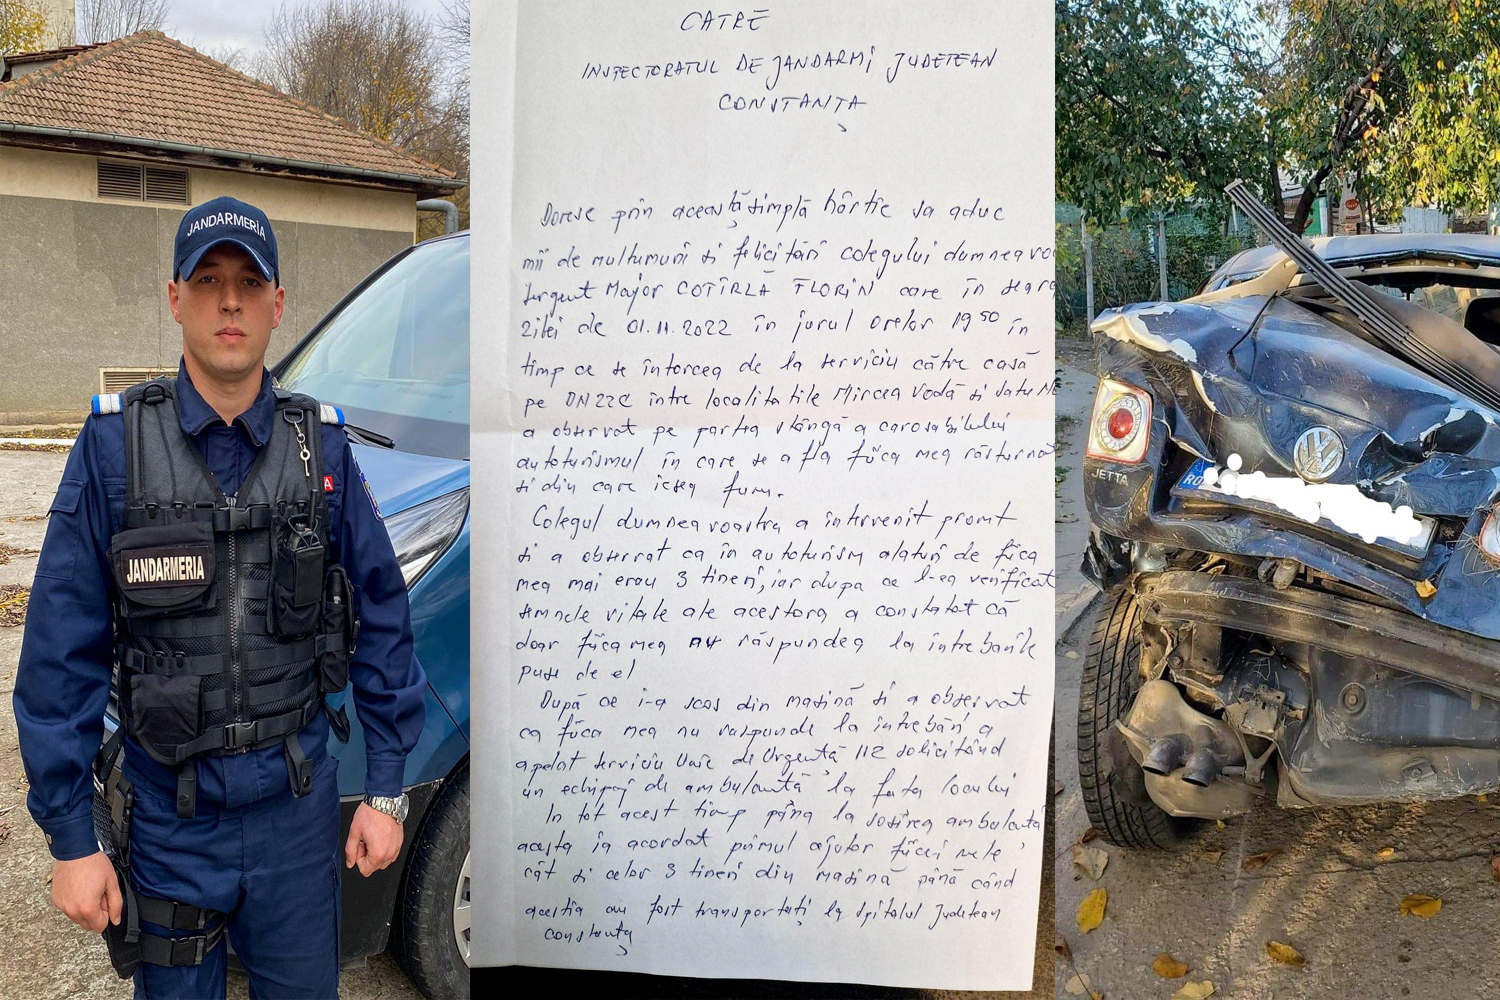 JANDARMERIA
JANDARMERIA
A
CĂTRE
INSPECTORATUL DE JANDARMI JUDEȚEAN
CONSTANȚA
Doresc prin această simplă hârtie sa aduc
mii de multumuri si felicitări colegului dumneavo
Sergent Major COTÎRLĂ FLORIN care în seara
zilei de 01.11.2022 în jurul orelor 19 50 în
timp ce se întorcea de la serviciu către casă
pe DN22C între localitatile Mircea Vodă si
a observat pe partea stângă a carosabilului
autoturismul în care se afla fiica mea răsturnat
si din care iesea fum.
Colegul dumneavoastra a intervenit promt
si a observat ca în autoturism alaturi de fiica
mea mai erau 3 tineri, iar dupa ce l-ea verificat
semnele vitale ale acestora a constatat că
doar fiica mea nu răspundea la întrebarile
puse de el
După ce i-a scos din masină si a observat
ca fiica mea nu raspunde la întrebări a
apelat serviciu Unic de Urgență 112 solicitând
un echipaj de ambulanță la fata locului
In tot acest timp pâna la sosirea ambulantă
acesta ia acordat primul ajutor fiicei mele
cât si celor 3 tineri din masină până când
acestia au fost transportați la spitalul Județean
Constanța
JETTA
RO
VW